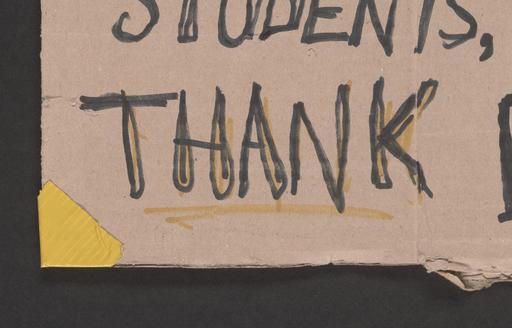 STUDENTS,
THANK